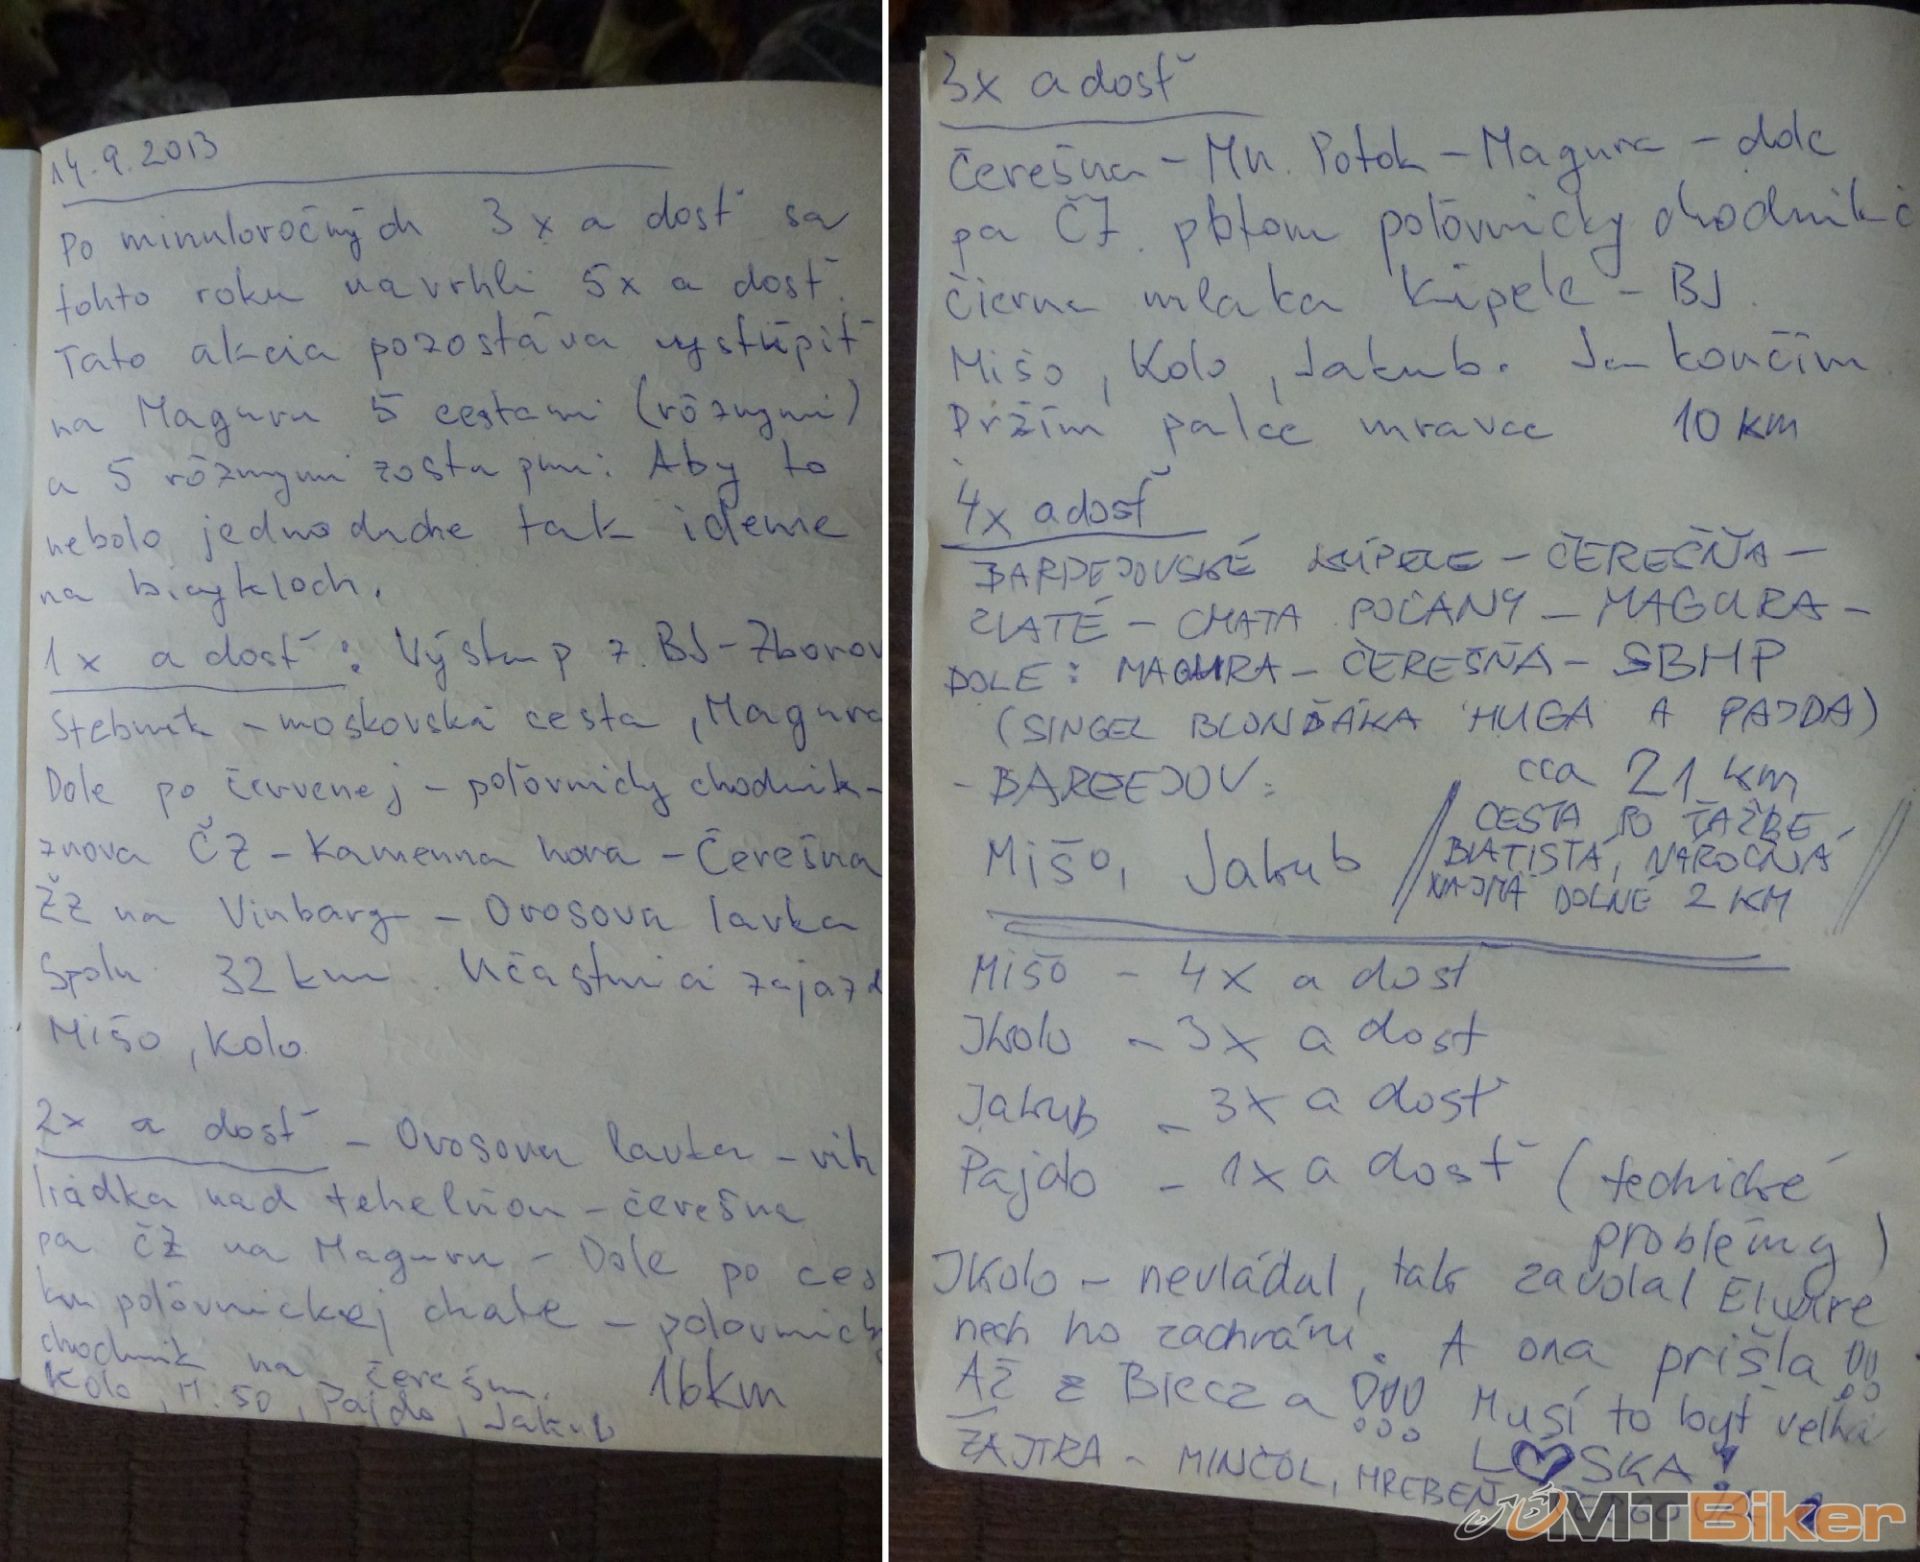 14.9.2013
Po minuloročných 3x a dosť sa
tohto roku navrhli 5x a dosť.
Táto akcia pozostáva vystúpiť
na Maguru 5 cestami (rôznymi)
a 5 rôznymi zostupmi. Aby to
nebolo jednoduche tak ideme
na bicykloch.
1x a dosť: Výstup z BJ-Zborov
Stebník - moskovská cesta, Magura
Dole po červenej - poľovnícky chodník -
znova ČZ - Kamenna hora - Čerešna
ŽZ na Vinbarg - Ovosova lavka
Spolu 32 km. Učastnici zajazd
Mišo, Kolo
2x a dosť - Ovosova lavka - vih
liadka nad tehelňou - čerešna
pa ČZ na Maguru - Dole po ces
ku poľovnickej chate - polovnick
chodnik na čerešnu. 16km
Kolo, Mišo, Pajdo, Jakub
3x a dosť
Čerešna - Mn. Potok - Magura - dole
pa ČZ. potom poľovnícky chodnik
čierna mlaka Kúpele - BJ.
Mišo, Kolo, Jakub. Ja končím
Držím palce mravce 10 km
4x a dosť
BARDEJOVSKÉ KÚPELE - ČEREŠŇA -
ZLATÉ - CHATA POČANY - MAGURA -
DOLE: MAGURA - ČEREŠŇA - SBHP
(SINGEL BLONĎÁKA HUGA A PAJDA)
- BARDEJOV: cca 21 km
CESTA PO ŤAŽBE,
BLATISTÁ, NÁROČNÁ
NAJMÄ DOLNÉ 2 KM
Mišo, Jakub
Mišo - 4x a dosť
JKolo - 3x a dosť
Jakub - 3x a dosť
Pajdo - 1x a dosť (technické
problémy)
JKolo - nevládal, tak zavolal Elwire
nech ho zachráni. A ona prišla !!
Až z Biecza !!! Musí to byť veľká
L♥SKA!
ZAJTRA - MINČOL, HREBEŇ
MTBiker